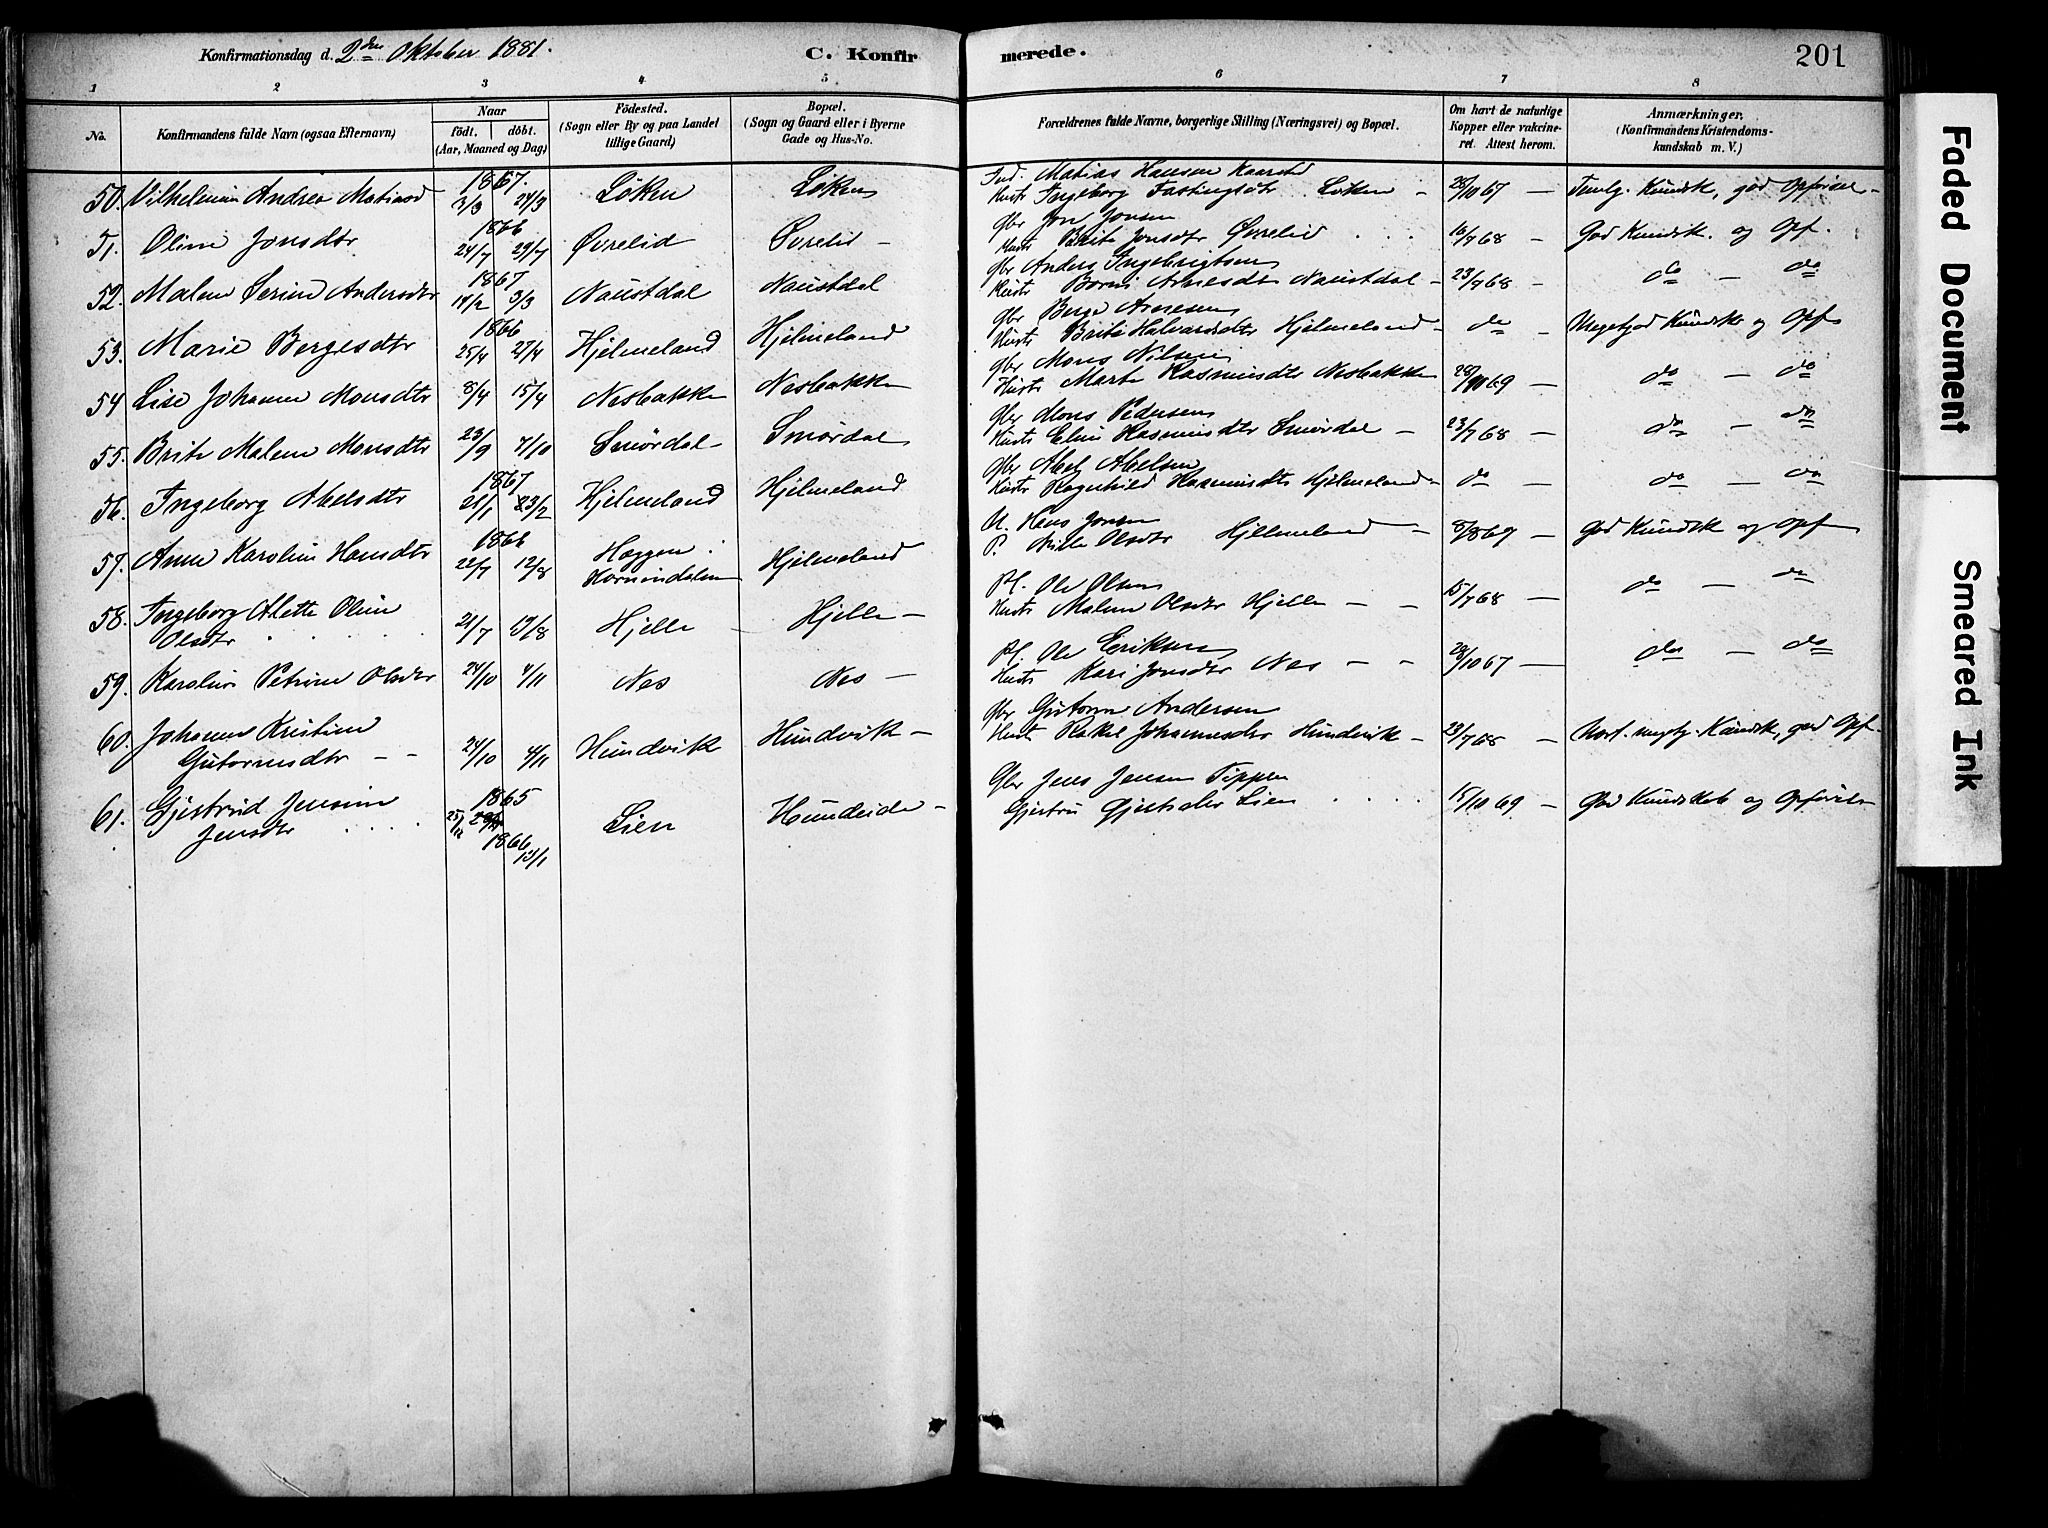 Konfirmationsdag d. 2den Oktober 1881.
C. Konfirmerede.
201
1 2 3 4 5 6 7 8
No.
Konfirmandens fulde Navn (ogsaa Efternavn)
Naar
födt. döbt.
(Aar, Maaned og Dag)
Födested.
(Sogn eller By og paa Landet tillige Gaard)
Bopæl.
(Sogn og Gaard eller i Byerne Gade og Hus-No.
Forældrenes fulde Navne, borgerlige Stilling (Næringsvei) og Bopæl.
Om havt de naturlige Kopper eller vakcineret. Attest herom.
Anmærkninger.
(Konfirmandens Kristendomskundskab m. V.)
1867.
Ind. Matias Hansen
50. Vilhelmine Andrea Matiasd 2/3 24/3 Løken Løken Hust Ingeborg Fastingsdtr Løken – 28/10 67 – Temlg. Kundsk, god Opførsel –
1866
Gbr Jon Jonsen
51. Oline Jonsdtr 24/7 29/7 Øvrelid Øvrelid – Hust Brite Jonsdtr Øvrelid 16/7 68 – God Kundsk. og Opf.
1867
Gbr Anders Ingebrigtsen
52. Malene Serine Andersdtr 18/2 3/3 Naustdal Naustdal Hust Arnesdtr Naustdal – 23/7 68 – do – do
1866
Gbr Berge Arnesen
53. Marie Bergesdtr 25/4 27/4 Hjelmeland Hjelmeland Hust Brite Halvardsdtr Hjelmeland – do – Megetgod Kundsk og Opf
Gbr Mons Nilsen
54 Lise Johanne Monsdtr 8/4 15/4 Nesbakke Nesbakke Hust Marte Rasmusdtr Nesbakke 28/10 69 – do – do
Gbr Mons Pedersen
55. Brite Malene Monsdtr 23/9 7/10 Smørdal Smørdal Hust Eline Rasmusdtr Smørdal – 23/7 68 – do – do
1867
Gbr Abel Abelsen
56. Ingeborg Abelsdtr 21/1 23/2 Hjelmeland Hjelmeland Hust Ragnhild Rasmusdtr Hjelmeland – do – do – do
U. Hans Jonsen
57. Anne Karoline Hansdtr 22/7 12/8 Haggen i Hornindalen Hjelmeland P. Olsdtr Hjelmeland – 8/8 69 – God Kundsk og Opf
Pl. Ole Olsen
58. Ingeborg Alette Oline 21/7 19/8 Hjelle Hjelle – Hust Malene Olsdtr Hjelle – – 15/7 68 – do – do
Olsdtr
Pl. Ole Eriksen
59. Karoline Petrine Olsdtr 24/10 4/11 Nes Nes – Hust Kari Jonsdtr Nes – – 28/10 67 – do – do
Gbr Gutorm Andersen
60. Johanne Kristine 24/10 4/11 Hundvik Hundvik – Hust Rakel Johannesdtr Hundvik – 23/7 68 – megtg. Kundsk, god Opf.
Gutormsdtr – –
1865
Gbr Jens Jensen Tippen
61. Gjertrud Jensine 25/12 Lien Hundeide – Gjertru Gjertsdtr Lien 15/10 69 – God Kundskab og Opførsel
Jensdtr
1866
13/1
Faded Document
Smeared Ink